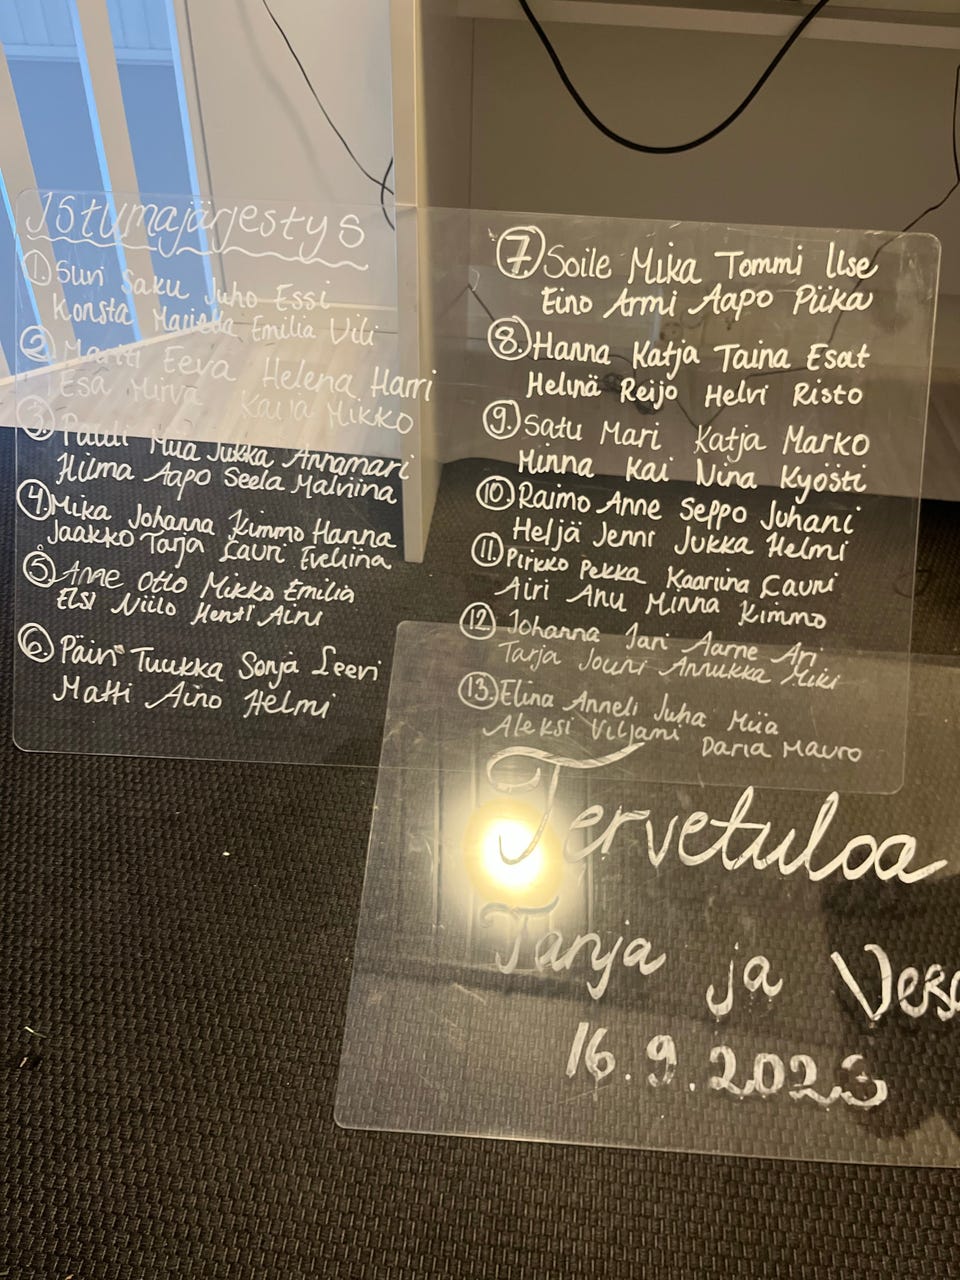 Istumajärjestys
1. Suvi Saku Juho Essi
Konsta Marietta Emilia Vili
2. Martti Eeva Helena Harri
Esa Mirva Kaija Mikko
3. Pauli Miia Jukka Annamari
Hilma Aapo Seela Malviina
4. Mika Johanna Kimmo Hanna
Jaakko Tarja Lauri Eveliina
5. Anne Otto Mikko Emilia
Elsi Niilo Hentti Aini
6. Päivi Tuukka Sonja Leevi
Matti Aino Helmi
7. Soile Mika Tommi Ilse
Eino Armi Aapo Piika
8. Hanna Katja Taina Esat
Helinä Reijo Helvi Risto
9. Satu Mari Katja Marko
Minna Kai Nina Kyösti
10. Raimo Anne Seppo Juhani
Heljä Jenni Jukka Helmi
11. Pirkko Pekka Kaariina Lauri
Airi Anu Minna Kimmo
12. Johanna Jari Aarne Ari
Tarja Jouni Annukka Miki
13. Elina Anneli Juha Miia
Aleksi Viljami Daria Mauro
Tervetuloa
Tanja ja
16.9.2023